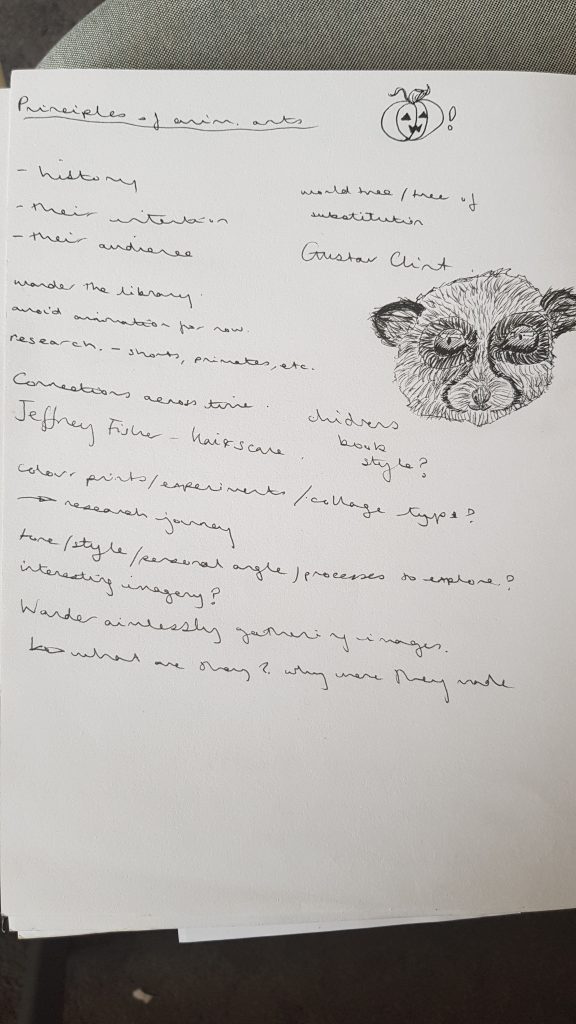 Principles of anim. arts
!
- history
- their intention
- their audience
world tree / tree of
substitution
Gustav Climt
wander the library.
avoid animation for now.
research. - shorts, primates, etc.
Connections across time.
Jeffrey Fisher - hair & scare.
childrens
book
style?
colour prints/experiments/collage type?
→ research journey
tone/style/personal angle/processes to explore?
interesting imagery?
Wander aimlessly gathering images.
what are they? why were they made